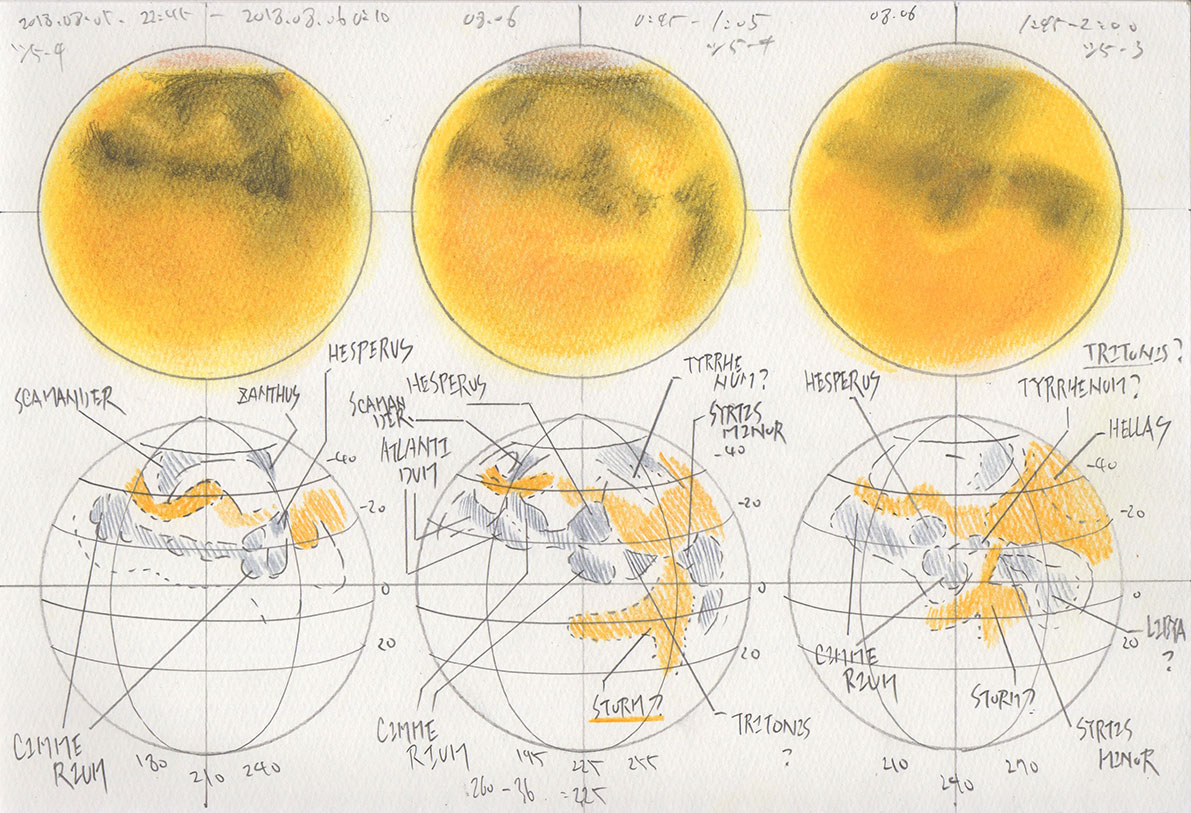 2018.08.05. 22:45 – 2018.08.06 0:10
5-4
08.06
0:45-1:05
5-4
08.06
1:45-2:00
5-3
SCAMANDER
ZANTHUS
HESPERUS
-40
-20
0
20
CIMME
RIUM
180
210
240
HESPERUS
SCAMAN
DER
ATLANTI
DUM
TYRRHE
NUM?
SYRTIS
MINOR
-40
-20
0
20
STORM?
TRITONIS
?
CIMME
RIUM
195
225
255
260-36 =225
HESPERUS
TRITONIS?
TYRRHENUM?
HELLAS
-40
-20
0
20
LIBYA
?
CIMME
RIUM
STORM?
SYRTIS
MINOR
210
240
270